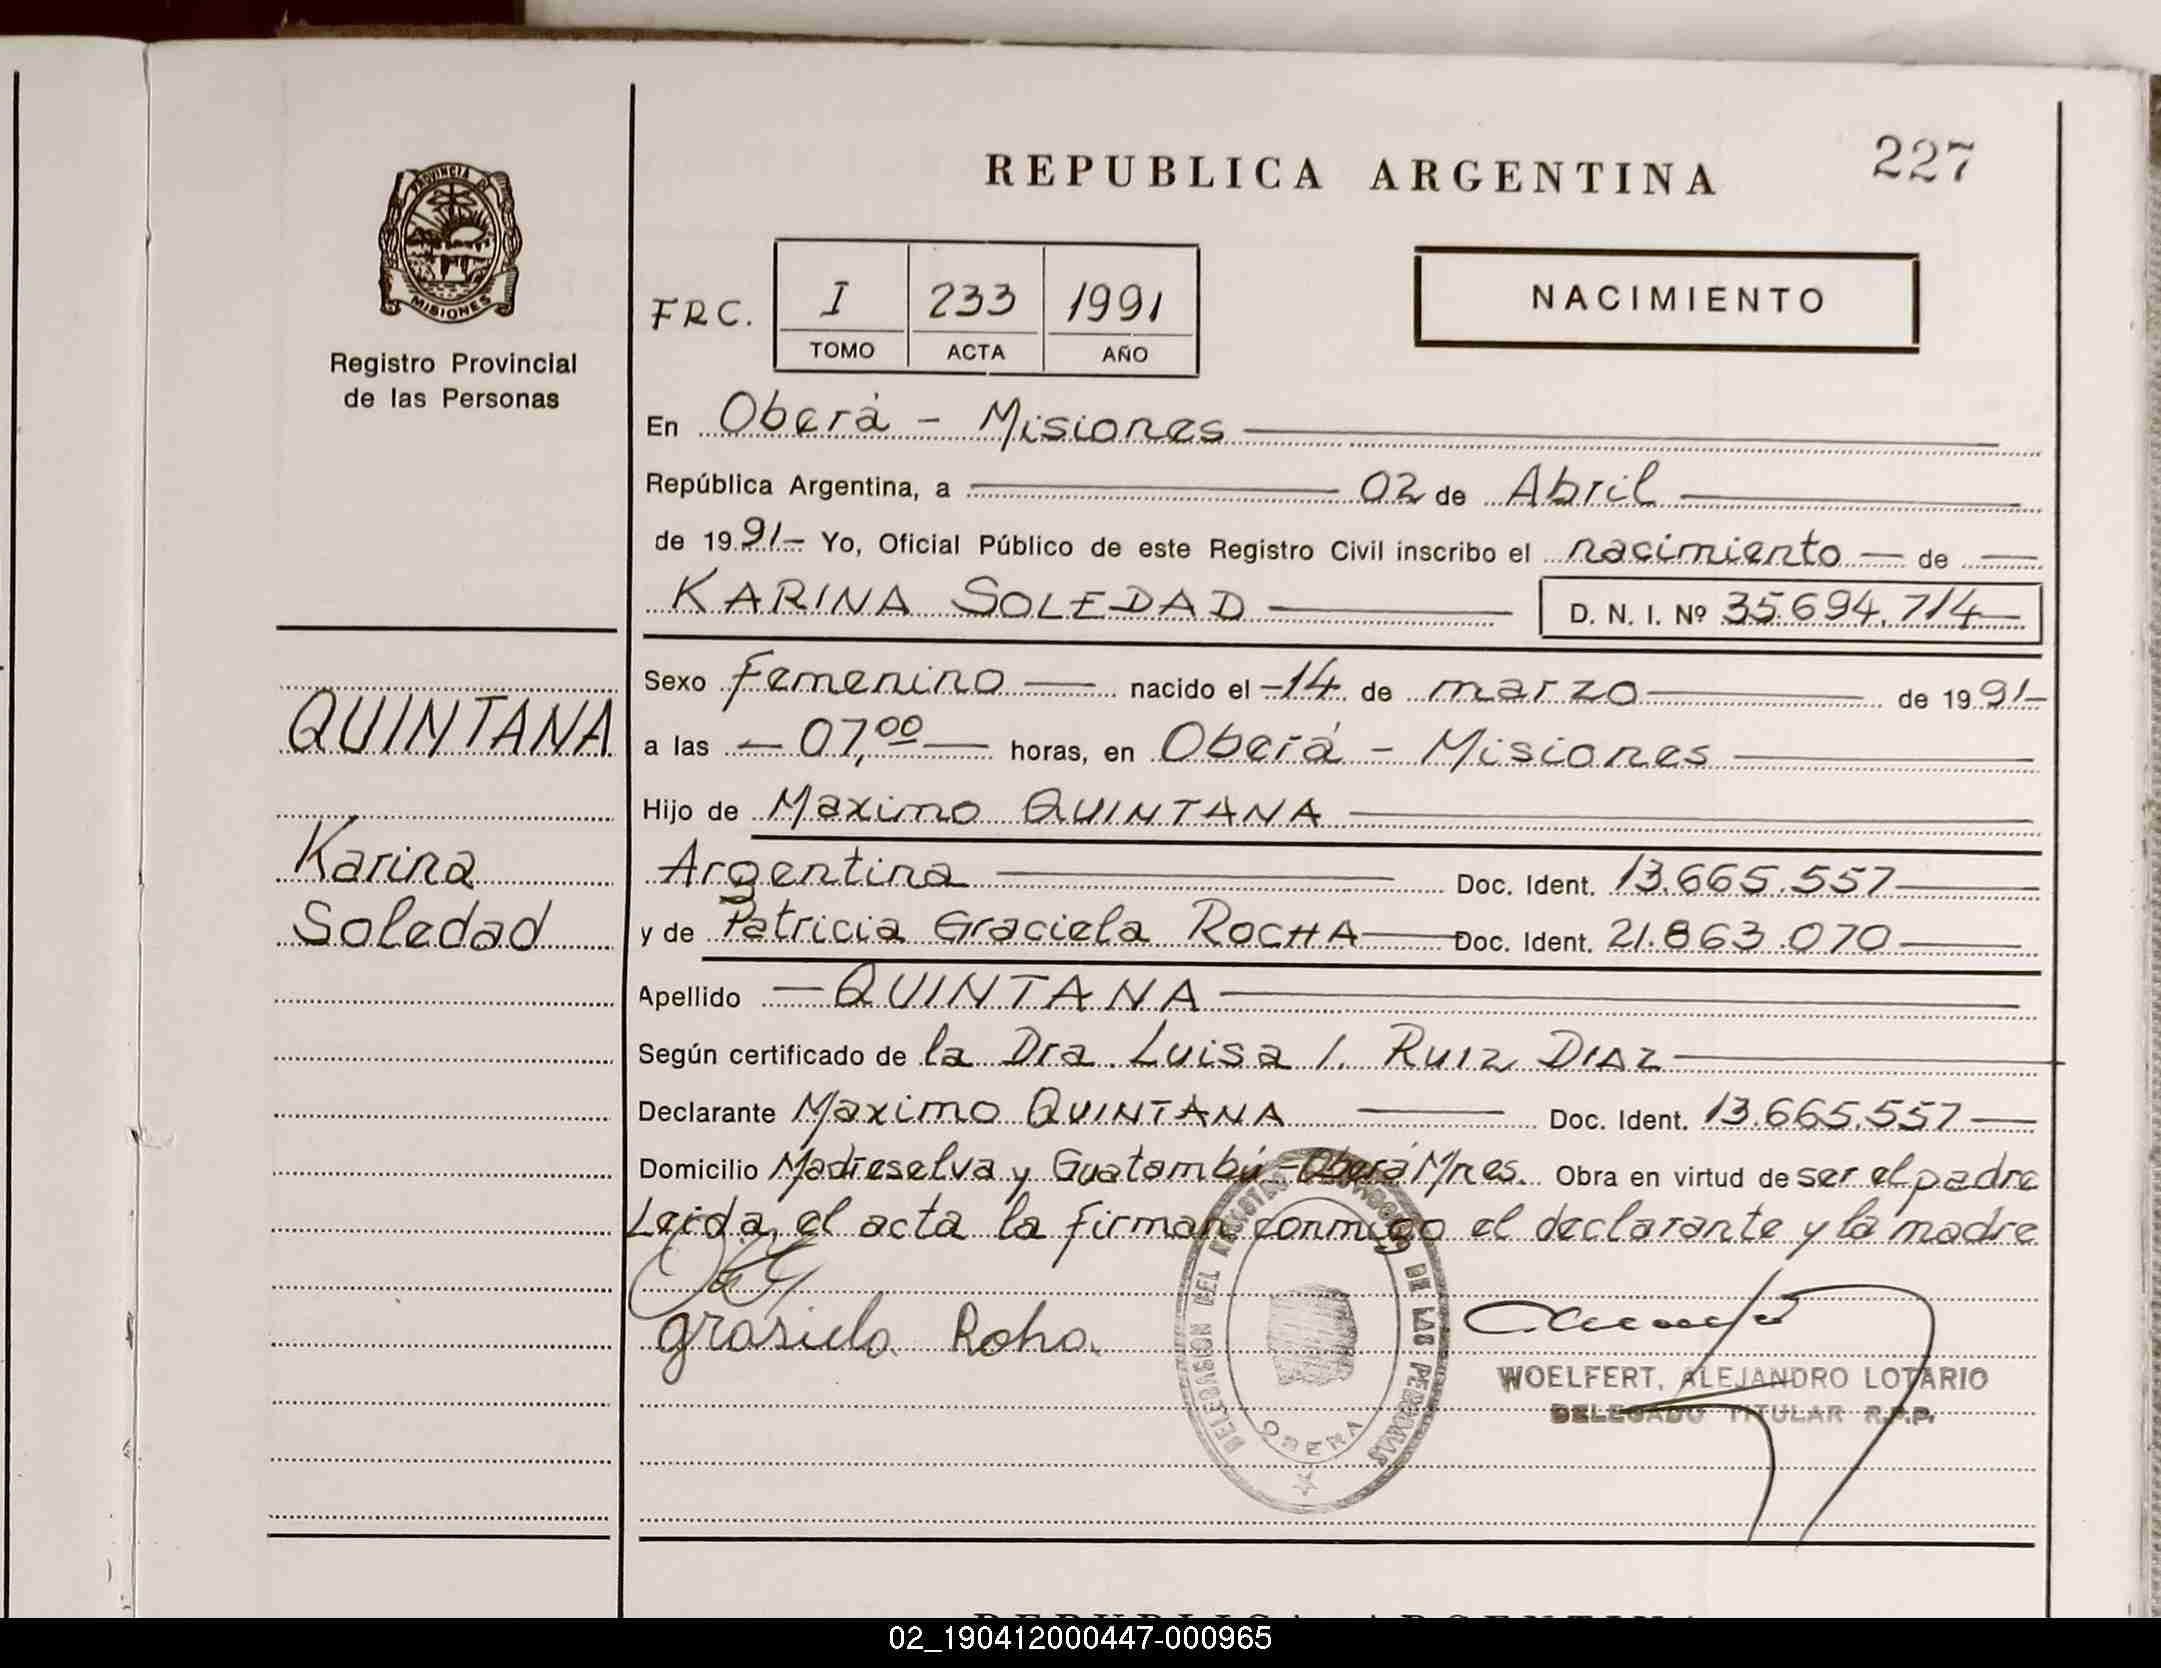 REPUBLICA ARGENTINA
227
PROVINCIA DE
MISIONES
Registro Provincial
de las Personas
FRC.
I 233 1991
TOMO ACTA AÑO
NACIMIENTO
En Oberá - Misiones
República Argentina, a 02 de Abril
de 1991- Yo, Oficial Público de este Registro Civil inscribo el nacimiento de
KARINA SOLEDAD D. N. I. Nº 35.694.714
QUINTANA
Karina
Soledad
Sexo Femenino nacido el -14 de marzo de 1991-
a las 07,00 horas, en Oberá - Misiones
Hijo de Maximo QUINTANA
Argentina Doc. Ident. 13.665.557
y de Patricia Graciela ROCHA Doc. Ident. 21.863.070
Apellido QUINTANA
Según certificado de la Dra. Luisa I. RUIZ DIAZ
Declarante Maximo QUINTANA Doc. Ident. 13.665.557
Domicilio Madreselva y Guatambú - Oberá Mnes. Obra en virtud de ser el padre
Leida, el acta la firman conmigo el declarante y la madre
grasiela Roha.
DELEGASION DEL REGISTRO DE LAS PERSONAS
OBERA
WOELFERT, ALEJANDRO LOTARIO
DELEGADO TITULAR R.P.P.
REPUBLICA ARGENTINA
02_190412000447-000965